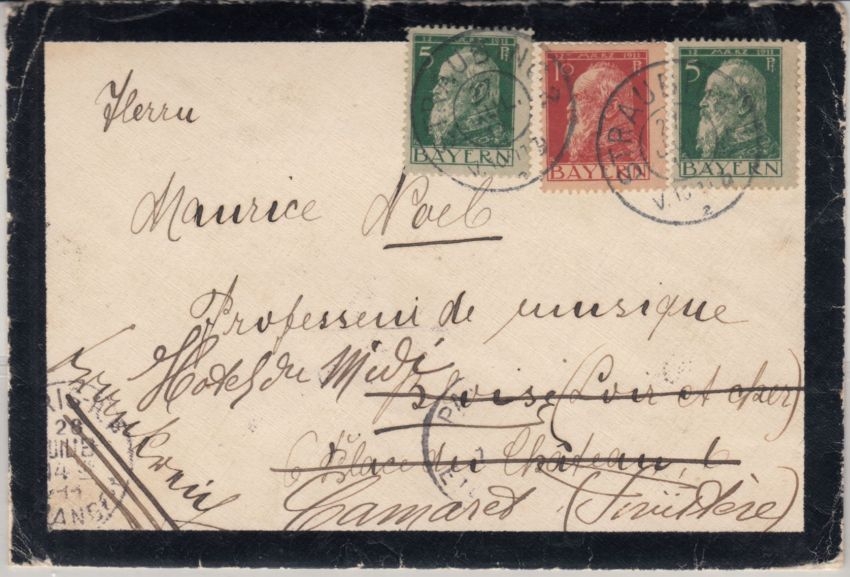 12. MÄRZ 1911
5 Pf
BAYERN
12. MÄRZ 1911
10 Pf
BAYERN
12. MÄRZ 1911
5 Pf
BAYERN
STRAUBING
V. 10-11
STRAUBING
V. 10-11
2
Herrn
Maurice Noel
Professeur de musique
Hotel du Midi
Blois (Loir et cher)
6 Place du Château, 6
Camaret (Finistère)
Frankreich
28
JUIN